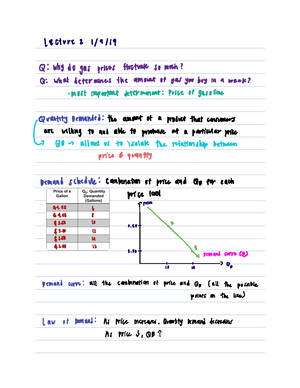 Lecture 2 1/9/19
Q: Why do gas prices fluctuate so much?
Q: What determines the amount of gas you buy in a week?
- most important determinant: Price of gasoline
Quantity Demanded: the amount of a product that consumers
are willing to and able to purchase at a particular price
QD → allows us to isolate the relationship between
price & quantity
Demand Schedule: Combination of price and QD for each
price level
Price of a Gallon
QD: Quantity Demanded (Gallons)
Demand curve (D)
QD
Demand curve: all the combination of price and QD (all the possible
points on the line)
Law of Demand: As Price increases, Quantity Demand decreases
As Price ↓, QD ↑